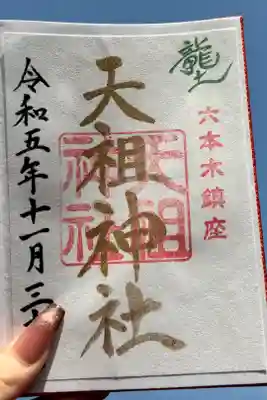 龍土
六本木鎮座
天祖神社
天祖神社
令和五年十一月三